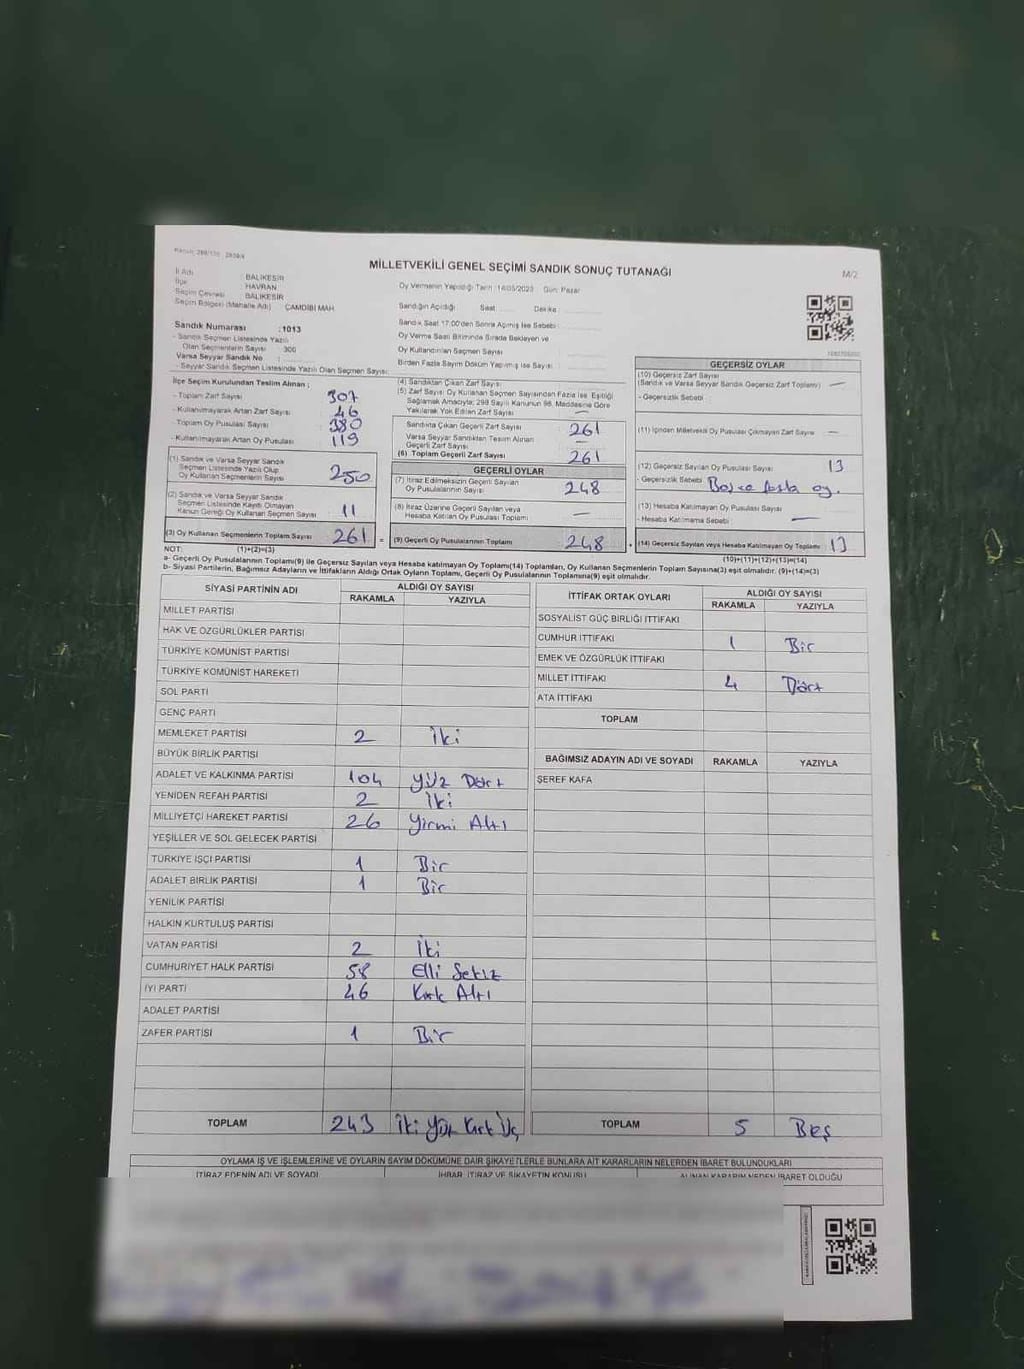 MİLLETVEKİLİ GENEL SEÇİMİ SANDIK SONUÇ TUTANAĞI
M/2
İli Adı : BALIKESİR
İlçe : HAVRAN
Seçim Çevresi : BALIKESİR
Seçim Bölgesi (Mahalle Adı) : ÇAMDİBİ MAH
Sandık Numarası : 1013
- Sandık Seçmen Listesinde Yazılı Olan Seçmenlerin Sayısı : 300
Varsa Seyyar Sandık No
- Seyyar Sandık Seçmen Listesinde Yazılı Olan Seçmen Sayısı
Oy Vermenin Yapıldığı Tarih : 14/05/2023 Gün: Pazar
Sandığın Açıldığı Saat Dakika
Sandık Saat 17:00'den Sonra Açılmış İse Sebebi
Oy Verme Saati Bitiminde Sırada Bekleyen ve
Oy Kullandırılan Seçmen Sayısı
Birden Fazla Sayım Döküm Yapılmış ise Sayısı
İlçe Seçim Kurulundan Teslim Alınan ;
- Toplam Zarf Sayısı 307
- Kullanılmayarak Artan Zarf Sayısı 46
- Toplam Oy Pusulası Sayısı 380
- Kullanılmayarak Artan Oy Pusulası 119
(1) Sandık ve Varsa Seyyar Sandık
Seçmen Listesinde Yazılı Olup
Oy Kullanan Seçmenlerin Sayısı 250
(2) Sandık ve Varsa Seyyar Sandık
Seçmen Listesinde Kayıtlı Olmayan
Kanun Gereği Oy Kullanan Seçmen Sayısı 11
(3) Oy Kullanan Seçmenlerin Toplam Sayısı 261 =
(1)+(2)=(3)
(4) Sandıktan Çıkan Zarf Sayısı
(5) Zarf Sayısı Oy Kullanan Seçmen Sayısından Fazla ise Eşitliği
Sağlamak Amacıyla; 298 Sayılı Kanunun 98. Maddesine Göre
Yakılarak Yok Edilen Zarf Sayısı —
Sandıkta Çıkan Geçerli Zarf Sayısı 261
Varsa Seyyar Sandıktan Teslim Alınan
Geçerli Zarf Sayısı —
(6) Toplam Geçerli Zarf Sayısı 261
GEÇERLİ OYLAR
(7) İtiraz Edilmeksizin Geçerli Sayılan
Oy Pusulalarının Sayısı 248
(8) İtiraz Üzerine Geçerli Sayılan veya
Hesaba Katılan Oy Pusulası Toplamı —
(9) Geçerli Oy Pusulalarının Toplamı 248 +
GEÇERSİZ OYLAR
(10) Geçersiz Zarf Sayısı
(Sandık ve Varsa Seyyar Sandık Geçersiz Zarf Toplamı) —
- Geçersizlik Sebebi
(11) İçinden Milletvekili Oy Pusulası Çıkmayan Zarf Sayısı —
(12) Geçersiz Sayılan Oy Pusulası Sayısı 13
- Geçersizlik Sebebi
(13) Hesaba Katılmayan Oy Pusulası Sayısı
- Hesaba Katılmama Sebebi —
(14) Geçersiz Sayılan veya Hesaba Katılmayan Oy Toplamı 13
(10)+(11)+(12)+(13)=(14)
NOT:
a- Geçerli Oy Pusulalarının Toplamı(9) ile Geçersiz Sayılan veya Hesaba katılmayan Oy Toplamı(14) Toplamları, Oy Kullanan Seçmenlerin Toplam Sayısına(3) eşit olmalıdır. (9)+(14)=(3)
b- Siyasi Partilerin, Bağımsız Adayların ve İttifakların Aldığı Ortak Oyların Toplamı, Geçerli Oy Pusulalarının Toplamına(9) eşit olmalıdır.
SİYASİ PARTİNİN ADI ALDIĞI OY SAYISI
RAKAMLA YAZIYLA
MİLLET PARTİSİ
HAK VE ÖZGÜRLÜKLER PARTİSİ
TÜRKİYE KOMÜNİST PARTİSİ
TÜRKİYE KOMÜNİST HAREKETİ
SOL PARTİ
GENÇ PARTİ
MEMLEKET PARTİSİ 2 İki
BÜYÜK BİRLİK PARTİSİ
ADALET VE KALKINMA PARTİSİ 104 Yüz Dört
YENİDEN REFAH PARTİSİ 2 İki
MİLLİYETÇİ HAREKET PARTİSİ 26 Yirmi Altı
YEŞİLLER VE SOL GELECEK PARTİSİ
TÜRKİYE İŞÇİ PARTİSİ 1 Bir
ADALET BİRLİK PARTİSİ 1 Bir
YENİLİK PARTİSİ
HALKIN KURTULUŞ PARTİSİ
VATAN PARTİSİ 2 İki
CUMHURİYET HALK PARTİSİ 58 Elli Sekiz
İYİ PARTİ 46 Kırk Altı
ADALET PARTİSİ
ZAFER PARTİSİ 1 Bir
TOPLAM 243 İki Yüz Kırk Üç
İTTİFAK ORTAK OYLARI ALDIĞI OY SAYISI
RAKAMLA YAZIYLA
SOSYALİST GÜÇ BİRLİĞİ İTTİFAKI
CUMHUR İTTİFAKI 1 Bir
EMEK VE ÖZGÜRLÜK İTTİFAKI
MİLLET İTTİFAKI 4 Dört
ATA İTTİFAKI
TOPLAM
BAĞIMSIZ ADAYIN ADI VE SOYADI RAKAMLA YAZIYLA
ŞEREF KAFA
TOPLAM 5 Beş
OYLAMA İŞ VE İŞLEMLERİNE VE OYLARIN SAYIM DÖKÜMÜNE DAİR ŞİKAYETLERLE BUNLARA AİT KARARLARIN NELERDEN İBARET BULUNDUKLARI
İTİRAZ EDENİN ADI VE SOYADI İHBAR, İTİRAZ VE ŞİKAYETİN KONUSU ALINAN KARARIN NEDEN İBARET OLDUĞU